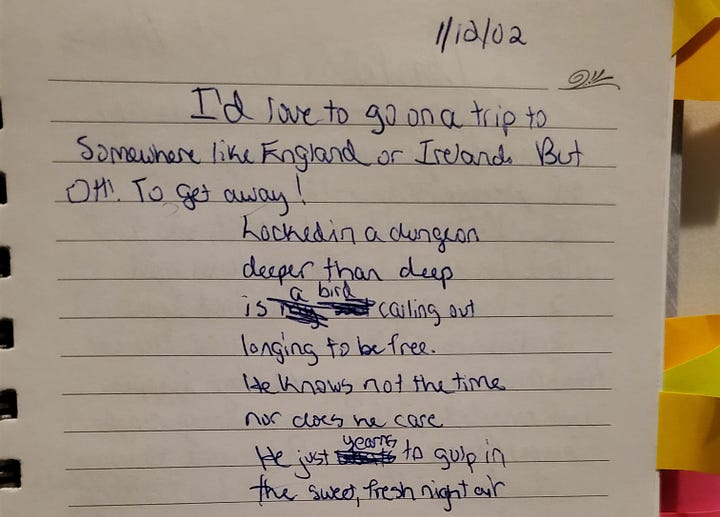 1/12/02
I'd love to go on a trip to
Somewhere like England or Ireland. But
OH! To get away!
Locked in a dungeon
deeper than deep
is a bird calling out
longing to be free.
He knows not the time
nor does he care
He just yearns to gulp in
the sweet, fresh night air